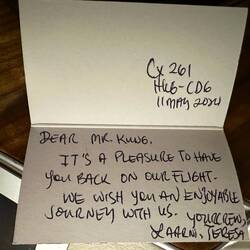 CX 261
HKG-CDG
11 MAY 2024
DEAR MR. KUNG.
IT'S A PLEASURE TO HAVE
YOU BACK ON OUR FLIGHT.
WE WISH YOU AN ENJOYABLE
JOURNEY WITH US. YOUR CREW,
TERESA